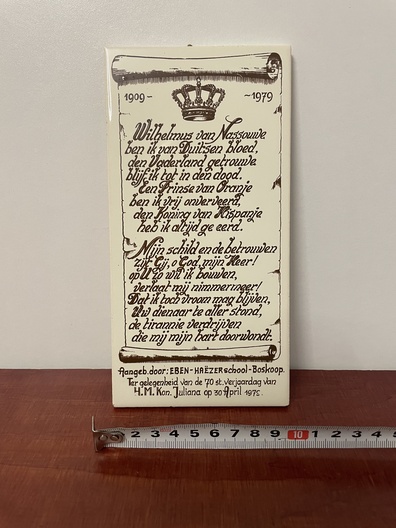 1909 - - 1979
Wilhelmus van Nassouwe
ben ik van Duitsen bloed,
den Vaderland getrouwe
blijf ik tot in den dood.
Een Prinse van Oranje
ben ik vrij onverveerd,
den Koning van Hispanje
heb ik altijd ge eerd.
Mijn schild en de betrouwen
zijt Gij, o God, mijn Heer!
op U zo wil ik bouwen,
verlaat mij nimmermeer!
Dat ik toch vroom mag blijven,
Uw dienaar te aller stond,
de tirannie verdrijven
die mij mijn hart doorwondt.
Aangeb. door: EBEN-HAËZERschool-Boskoop.
Ter gelegenheid van de 70 st. verjaardag van
H.M. Kon. Juliana op 30 April
1 2 3 4 5 6 7 8 9 10 1 2 3 4 5